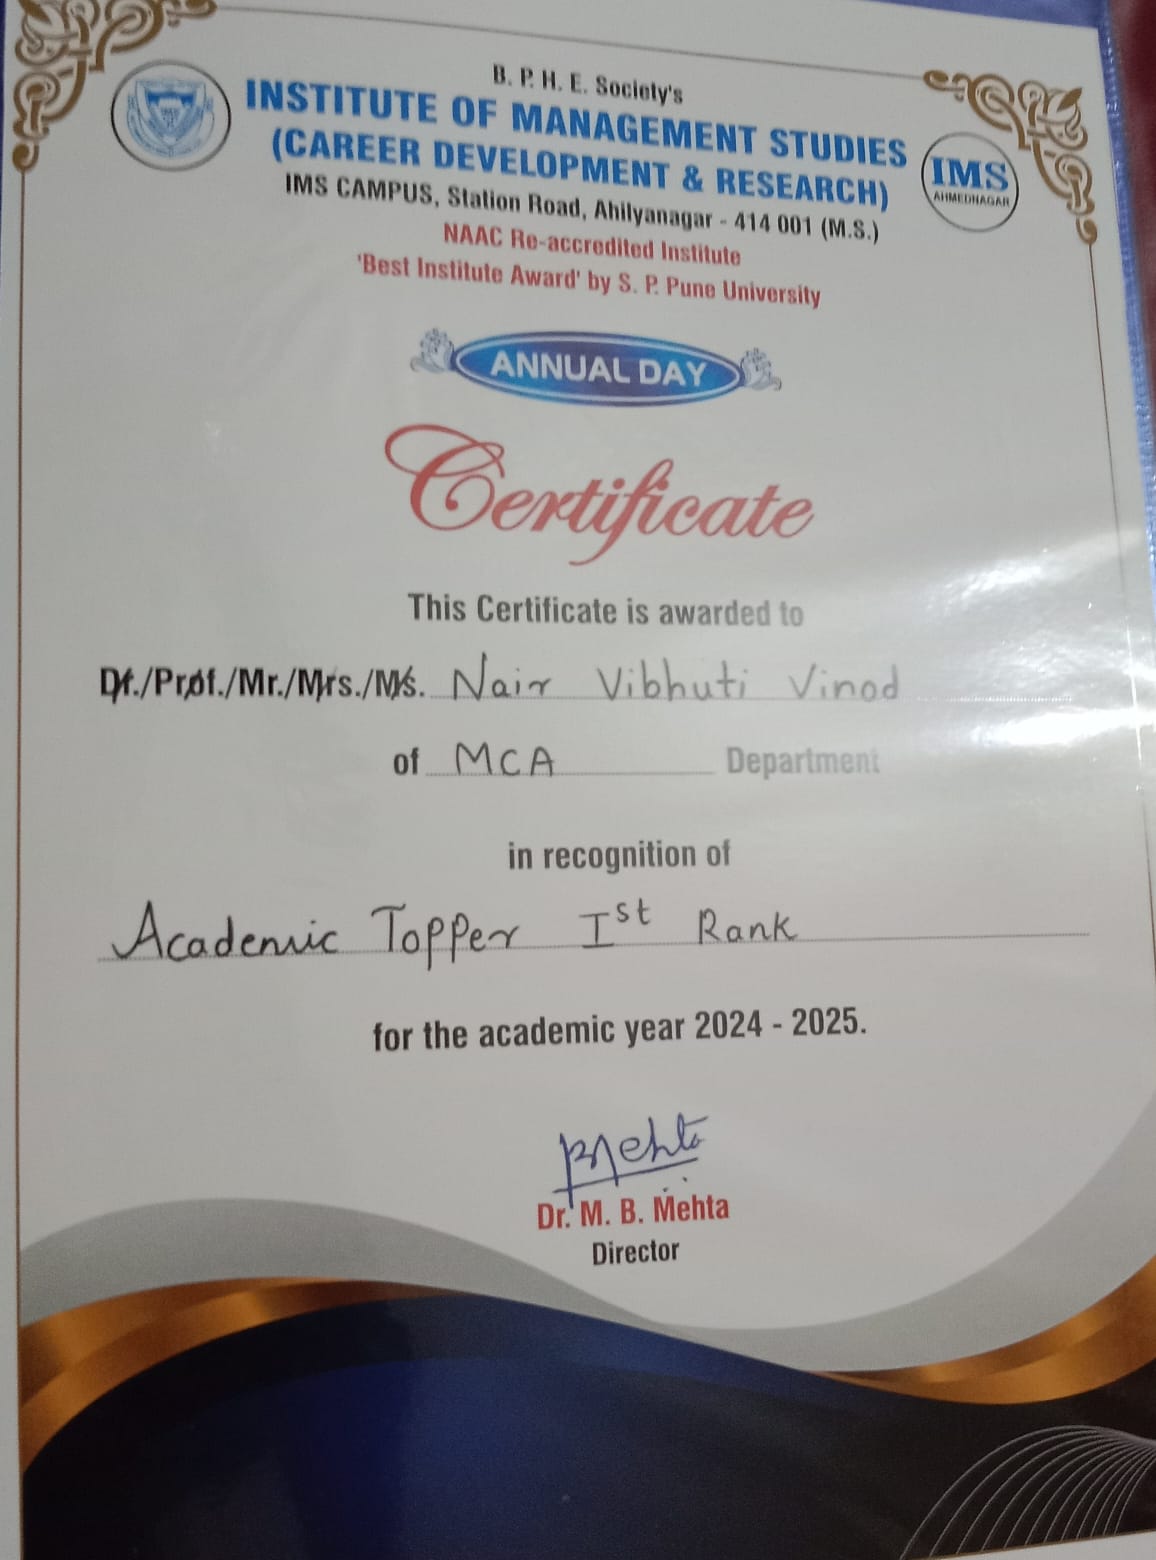 B. P. H. E. Society's
INSTITUTE OF MANAGEMENT STUDIES
(CAREER DEVELOPMENT & RESEARCH)
IMS
AHMEDNAGAR
IMS CAMPUS, Station Road, Ahilyanagar - 414 001 (M.S.)
NAAC Re-accredited Institute
'Best Institute Award' by S. P. Pune University
ANNUAL DAY
Certificate
This Certificate is awarded to
Dr./Prof./Mr./Mrs./Ms. Nair Vibhuti Vinod
of MCA Department
in recognition of
Academic Topper Ist Rank
for the academic year 2024 - 2025.
BMehta
Dr. M. B. Mehta
Director